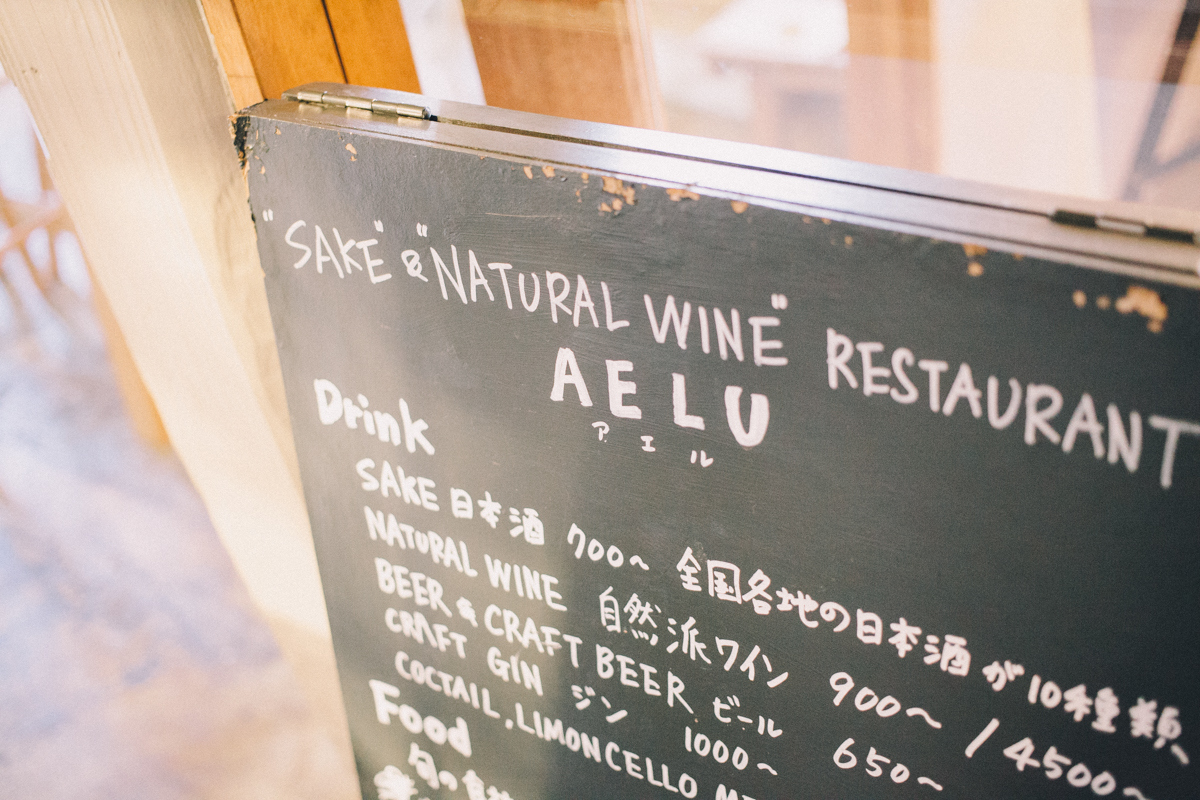 "SAKE" & "NATURAL WINE" RESTAURANT
AELU
アエル
Drink
SAKE 日本酒 700～ 全国各地の日本酒が10種類、
NATURAL WINE 自然派ワイン 900～ / 4500～
BEER & CRAFT BEER ビール 650～
CRAFT GIN ジン 1000～
COCTAIL, LIMONCELLO
Food
旬の